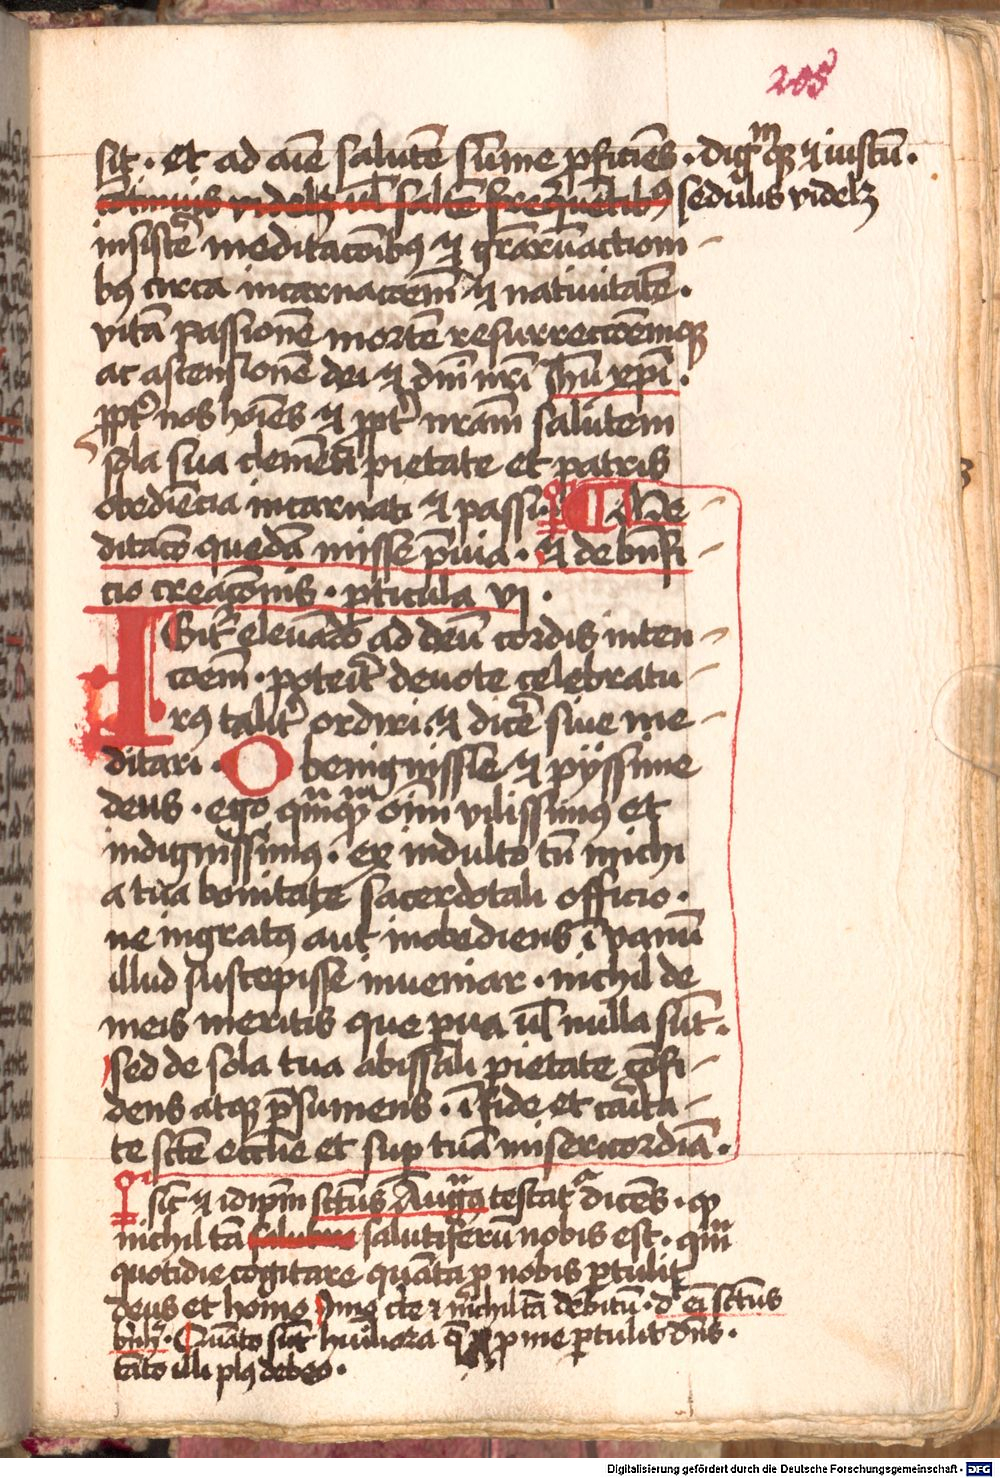 205
sit · et ad aīe salutē sūme ꝑficiēs · dig̅ qꝫ ⁊ iustū ·
cōtinuis videlꝫ ul̄ saltē freq̄uētibꝰ sedulis videlꝫ
insistē meditacōibꝰ ⁊ gr̄aꝝ actioni
bꝰ circa incarnacoēm ⁊ natiuitatē ·
vitā passionē mortē resurrectōemqꝫ
ac ascensionē dei ⁊ dn̄i nr̄i Ihū xp̄i ·
ꝓpt̄ nos hōies ⁊ ꝓpt̄ nr̄am salutem
sola sua clemēti pietate et patris
obediēcia incarnati ⁊ passi · Me
ditacō quedā misse p̄uia · Et de bn̄fi
cio creacōnis · ꝑticula vj ·
Igit̄ eleuādo ad deū cordis inten
coēm · poterit deuote celebratu
rꝰ talit̄ ordiri · ⁊ dicē siue me
ditari · O benignissīe ⁊ pijssime
deus · ego qmqꝫ oīm vilissimꝰ et
indignissimꝰ · ex indulto tn̄ michi
a tua bonitate sacerdotali officio ·
ne ingratꝰ aut inobediens ī vanū
illud suscepisse inueniar · nichil de
meis meritis que ꝑua ul̄ nulla sūt ·
sed de sola tua abissali pietate cōfi
dens atqꝫ p̄sumens · ī fide et cārita
te scte ecclīe et suꝑ tuā misericordiā ·
sic ⁊ idip̄m sctūs Aug testat̄ dicēs · qꝫ
nichil tā salutiferū nobis est · qm
quotidie cogitare quāta ꝓ nobis ꝑtulit
deus et homo Imo nichil tā debitū · sctūs
bn̄h · Quāto sūt ꝓ me ꝑtulit dn̄s ·
tāto illi plꝰ debeo ·
Digitalisierung gefördert durch die Deutsche Forschungsgemeinschaft · DFG